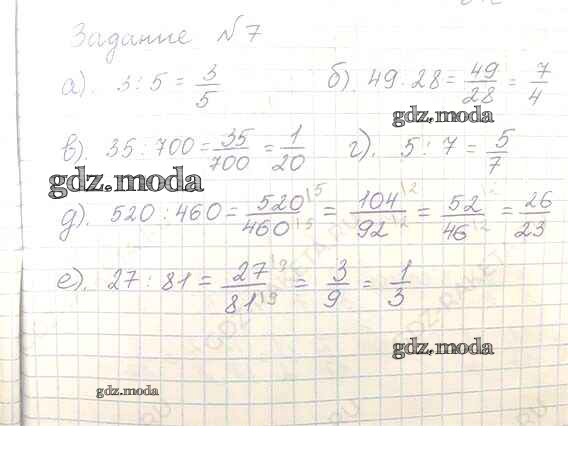 Задание №7
а). 3 : 5 = 3/5 б) 49 . 28 = 49/28 = 7/4
gdz.moda
в) 35 : 700 = 35/700 = 1/20 г). 5 : 7 = 5/7
gdz.moda
д). 520 : 460 = 520/460 |5 |5 = 104/92 |2 |2 = 52/46 |2 |2 = 26/23
е). 27 : 81 = 27/81 |9 |9 = 3/9 = 1/3
gdz.moda
gdz.moda